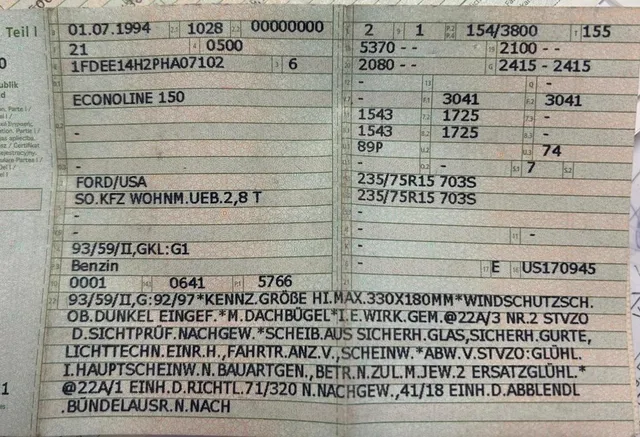 Teil I
01.07.1994 1028 00000000 2 1 154/3800 155
21 0500 5370 -- 2100 --
1FDEE14H2PHA07102 6 2080 -- 2415 - 2415
- - -
ECONOLINE 150 - 3041 3041
1543 1725 -
- 1543 1725 -
89P - 74
- - 7
FORD/USA 235/75R15 703S
SO.KFZ WOHNM.UEB.2,8 T 235/75R15 703S
- -
- - -
93/59/II,GKL:G1 -
Benzin - E US170945
0001 0641 5766
93/59/II,G:92/97*KENNZ.GRÖßE HI.MAX.330X180MM*WINDSCHUTZSCH.
OB.DUNKEL EINGEF.*M.DACHBÜGEL*I.E.WIRK.GEM.@22A/3 NR.2 STVZO
D.SICHTPRÜF.NACHGEW.*SCHEIB.AUS SICHERH.GLAS,SICHERH.GURTE,
LICHTTECHN.EINR.H.,FAHRTR.ANZ.V.,SCHEINW.*ABW.V.STVZO:GLÜHL.
I.HAUPTSCHEINW.N.BAUARTGEN.,BETR.N.ZUL.M.JEW.2 ERSATZGLÜHL.*
@22A/1 EINH.D.RICHTL.71/320 N.NACHGEW.,41/18 EINH.D.ABBLENDL
.BÜNDELAUSR.N.NACH